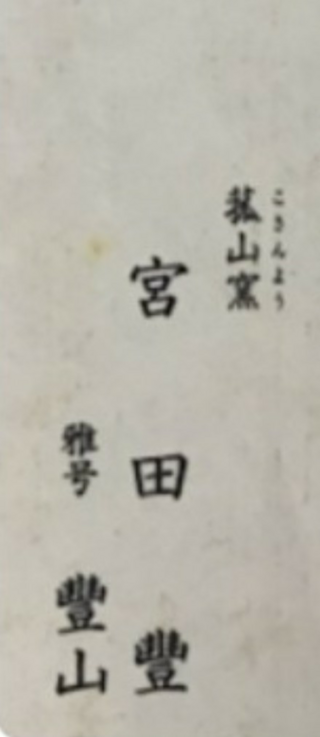 菰山窯
こざんよう
宮田豐
雅号 豐山